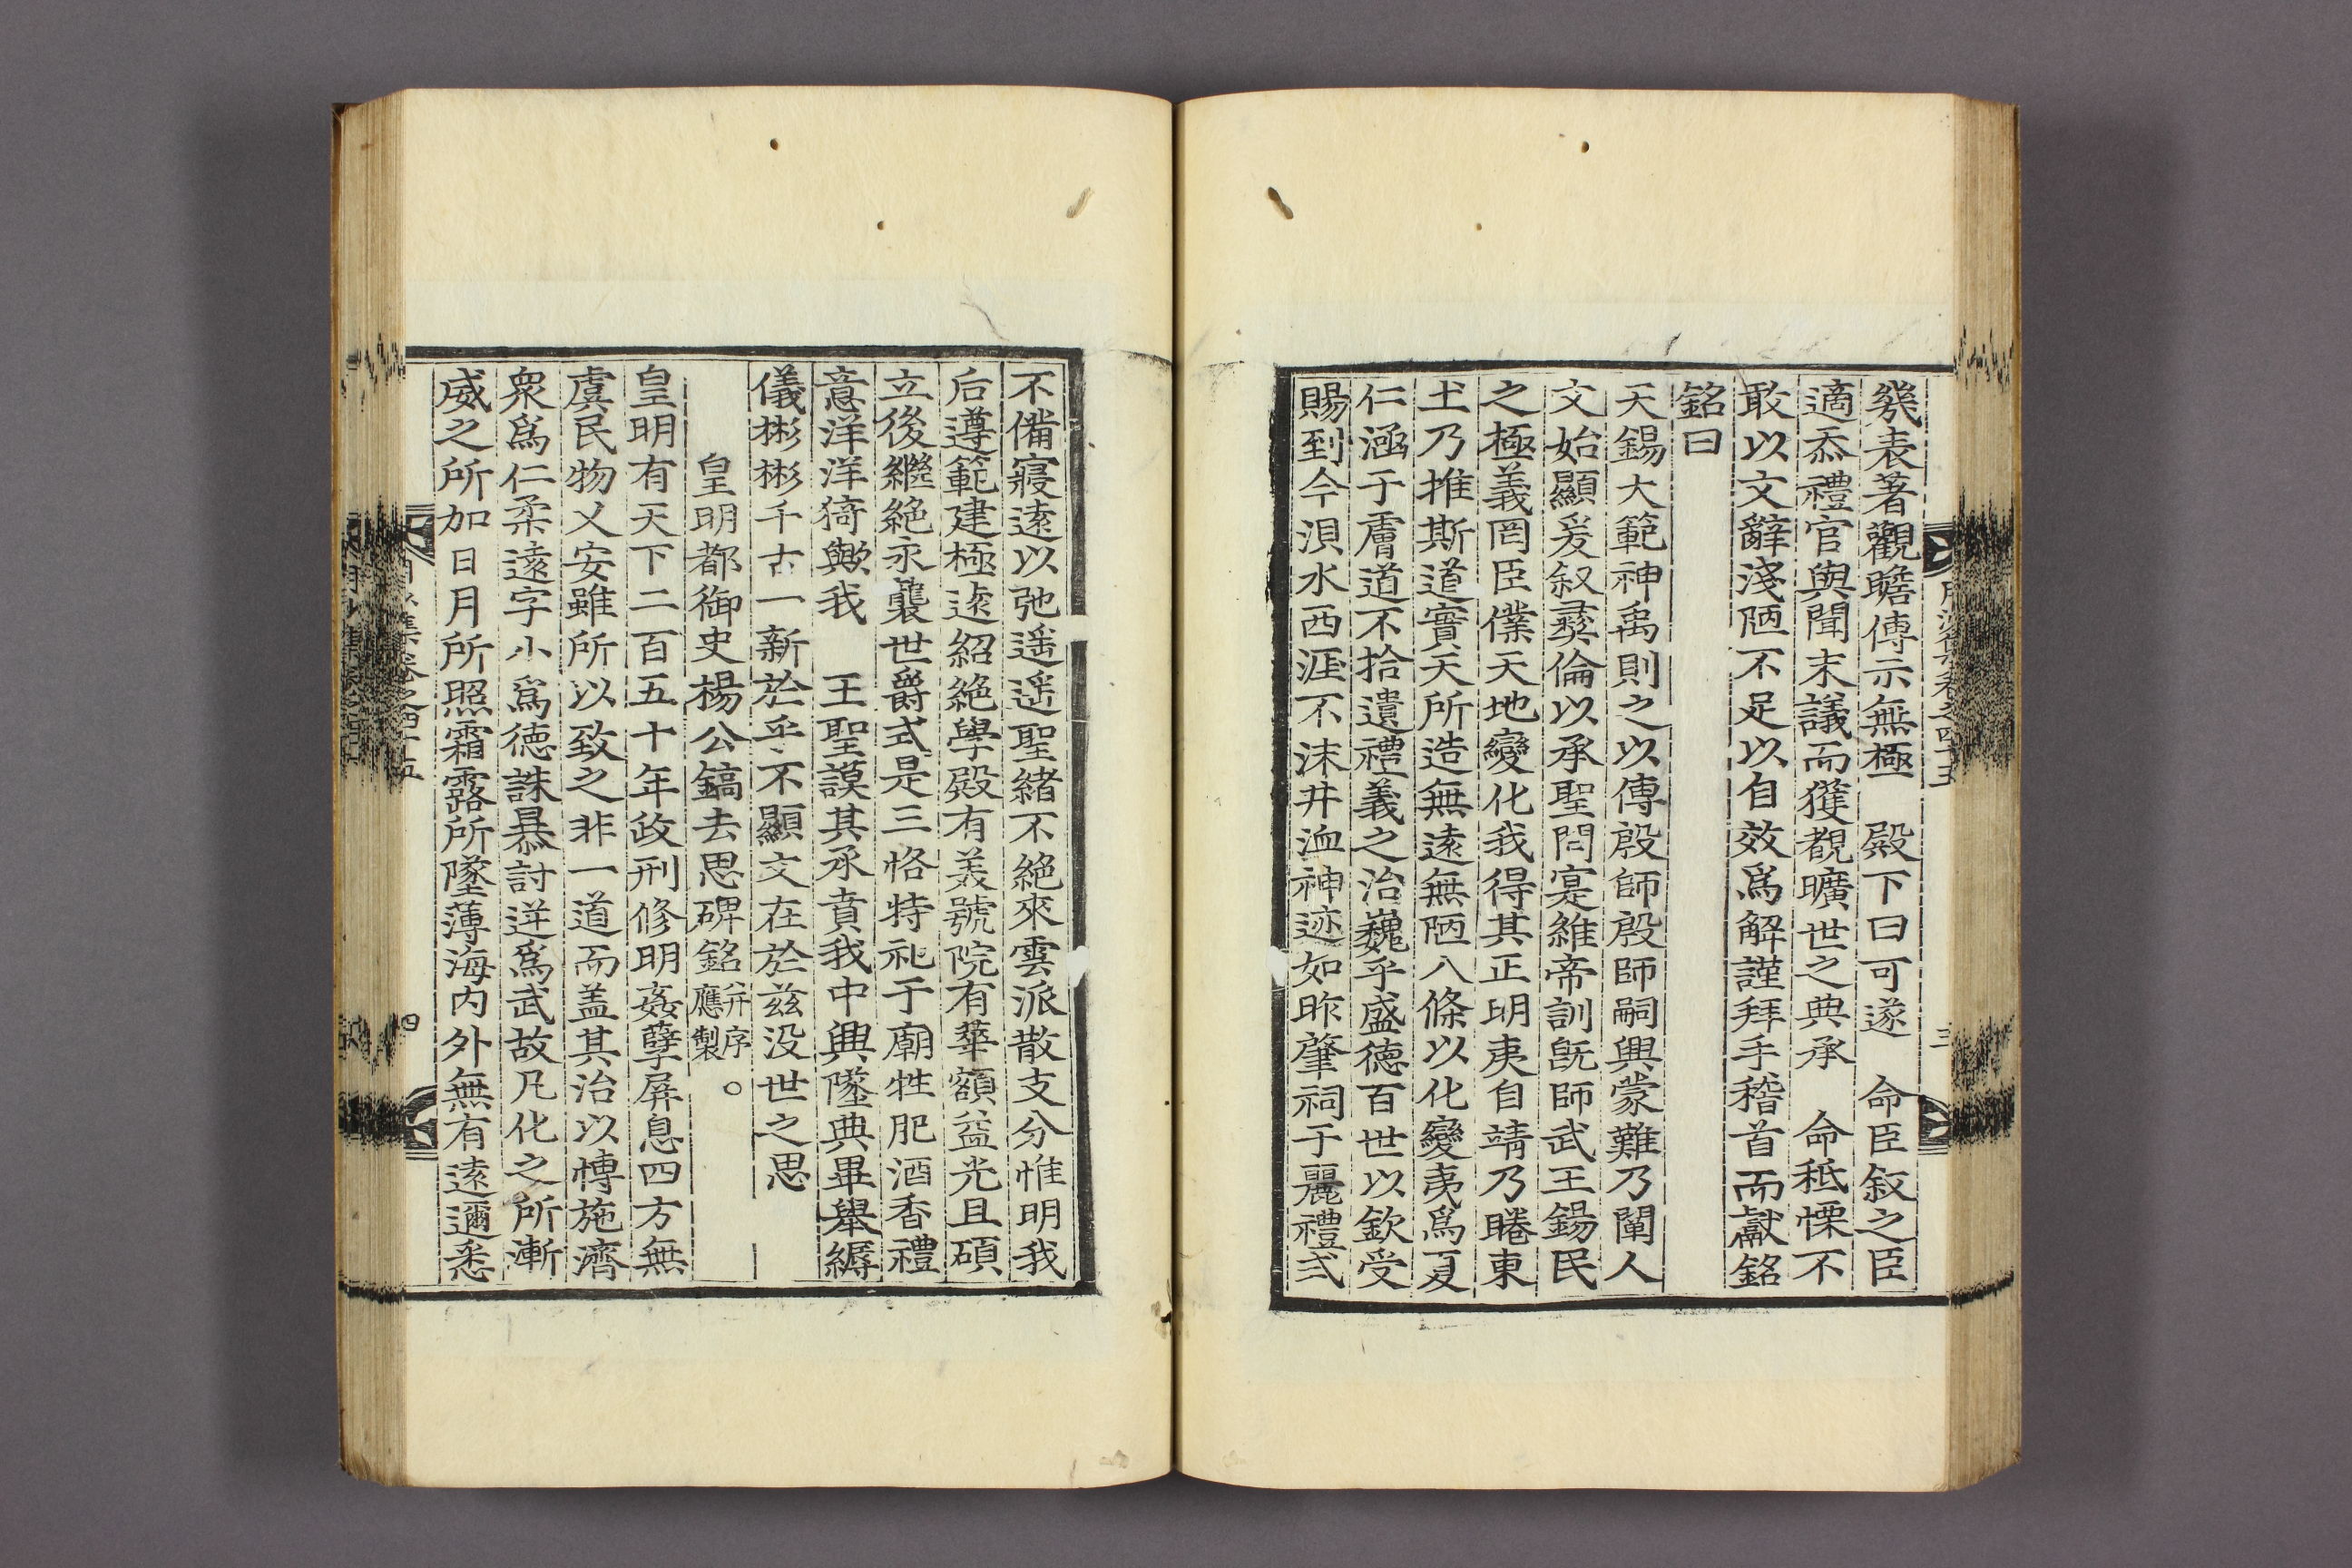 幾表著觀瞻傳示無極　殿下曰可遂　命臣叙之臣
適忝禮官與聞末議而獲覩曠世之典承　命秪慄不
敢以文辭淺陋不足以自效爲解謹拜手稽首而獻銘
銘曰
天錫大範神禹則之以傳殷師殷師嗣興蒙難乃闡人
文始顯爰叙彛倫以承聖問寔維帝訓旣師武王錫民
之極義罔臣僕天地變化我得其正明夷自靖乃睠東
土乃推斯道實天所造無遠無陋八條以化變夷爲夏
仁涵于膚道不拾遺禮義之治巍乎盛德百世以欽受
賜到今浿水西涯不沫井洫神迹如昨肇祠于麗禮弍
不備寢遠以弛遥遥聖緖不絶來雲派散支分惟明我
后遵範建極逺紹絶學殿有美號院有華額益光且碩
立後繼絶永襲世爵式是三恪特祀于廟牲肥酒香禮
意洋洋猗歟我　王聖謨其承賁我中興墜典畢擧縟
儀彬彬千古一新於乎不顯文在於兹没世之思
皇明都御史楊公鎬去思碑銘 并序 應製 ○
皇明有天下二百五十年政刑修明姦孽屏息四方無
虞民物乂安雖所以致之非一道而盖其治以愽施濟
衆爲仁柔遠字小爲德誅暴討逆爲武故凡化之所漸
威之所加日月所照霜露所墜薄海内外無有遠邇悉
四
三